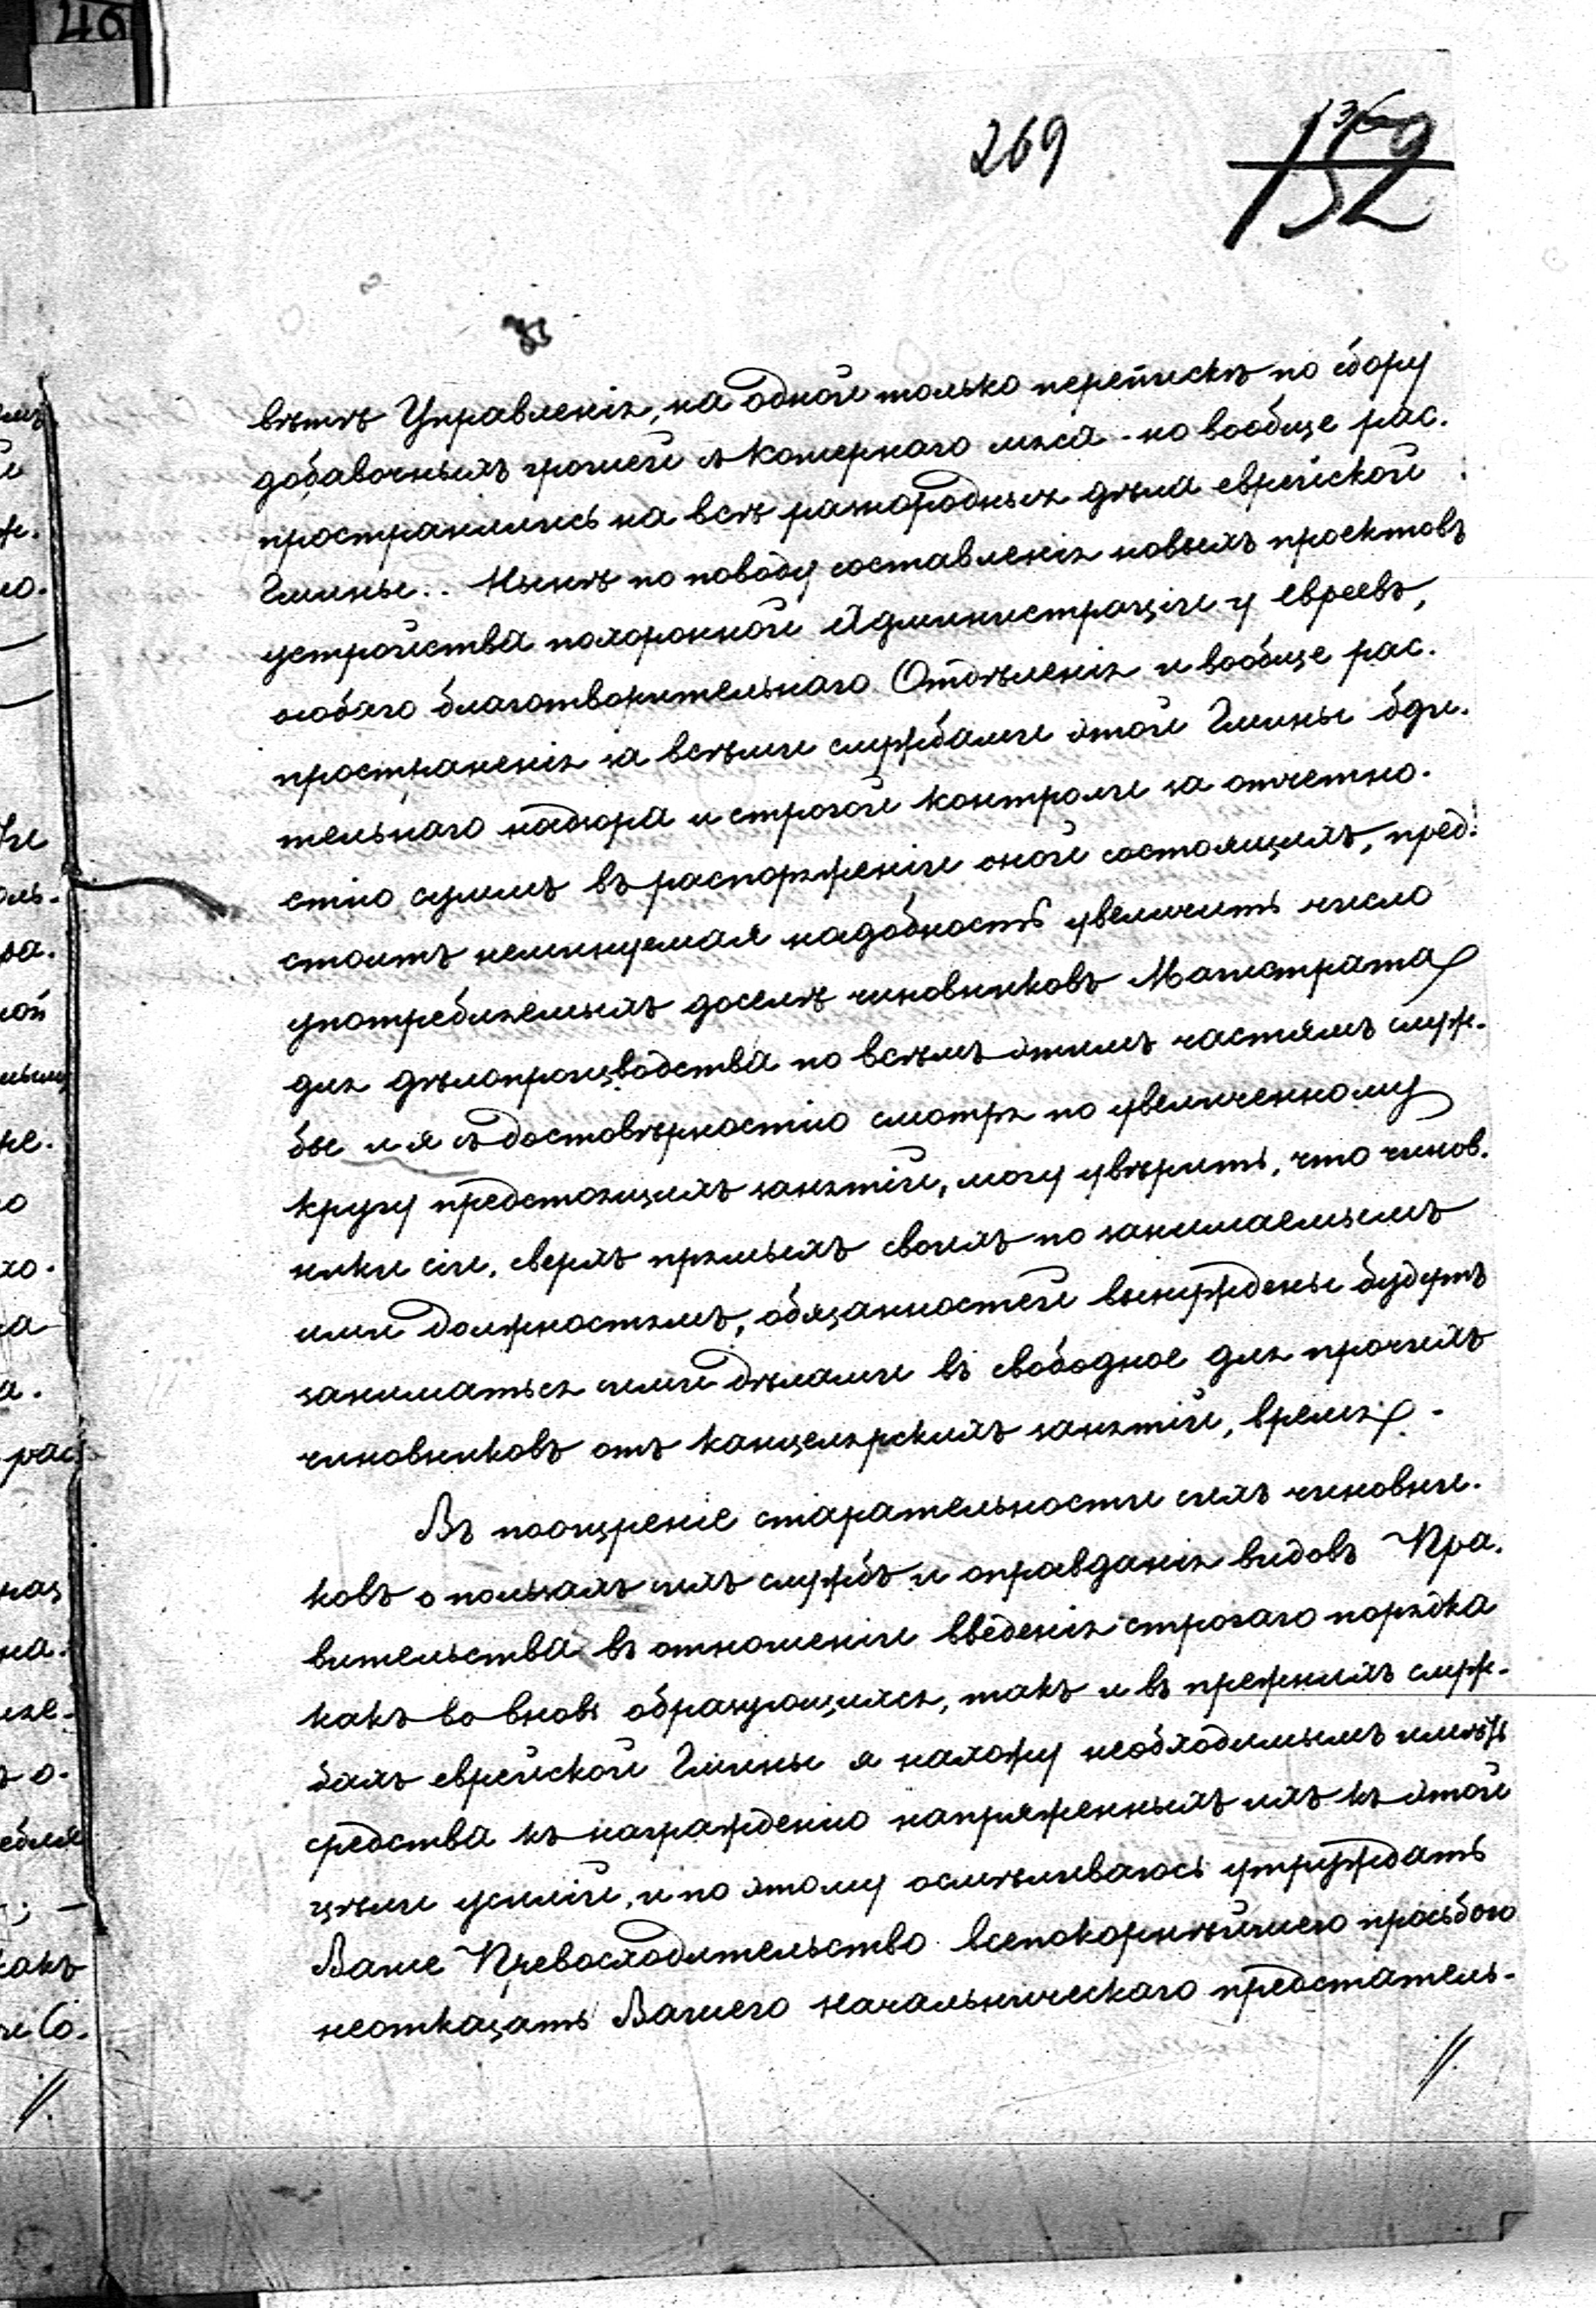 46
269
152
вѣтѣ Управленія, на одной только перепискѣ по сбору
добавочныхъ грошей съ кошернаго мяса - но вообще рас-
пространились на всѣ разнородныя дѣла еврейской
Гмины.. Нынѣ по поводу составленія новыхъ проектовъ
устройства похоронной Администраціи у евреевъ,
особаго благотворительнаго Отдѣленія и вообще рас-
пространенія за всѣми службами этой Гмины бди-
тельнаго надзора и строгой контроли за отчетно-
стію суммъ въ распоряженіи оной состоящихъ, пред-
стоитъ неминуемая надобность увеличить число
употребляемыхъ доселѣ чиновниковъ Магистрата
для дѣлопроизводства по всѣмъ этимъ частямъ служ-
бы и я съ достовѣрностію смотря по увеличенному
кругу предстоящихъ занятій, могу увѣрить, что чинов-
ники сіи, сверхъ прямыхъ своихъ по занимаемымъ
ими должностямъ, обязанностей вынуждены будутъ
заниматься сими дѣлами въ свободное для прочихъ
чиновниковъ отъ канцелярскихъ занятій, время. -
Въ поощреніе старательности сихъ чиновни-
ковъ о пользахъ сихъ службъ и оправданія видовъ Пра-
вительства въ отношеніи введенія строгаго порядка
какъ во вновь образующихся, такъ и въ прежнихъ служ-
бахъ еврейской Гмины я нахожу необходимымъ имѣть
средства къ награжденію напряженныхъ ихъ къ этой
цѣли усилій, и по этому осмѣливаюсь утруждать
Ваше Превосходительство всепокорнѣйшею прозьбою
неотказать Вашего начальническаго предстатель-
//.